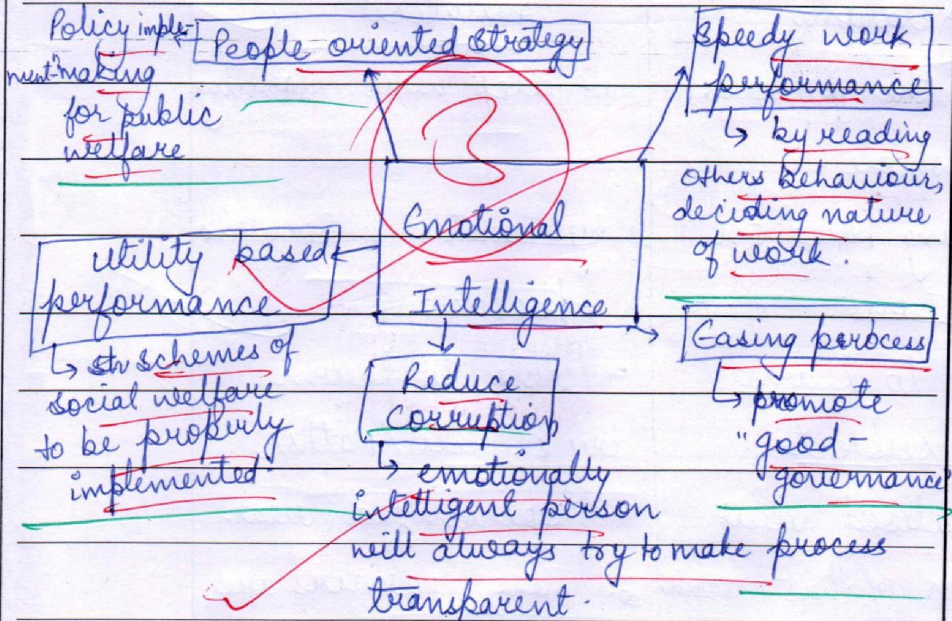 Policy imple-
ment making
for public
welfare
People oriented strategy
Speedy work
performance
↳ by reading
others behaviour,
deciding nature
of work.
3
Emotional
Intelligence
utility based
performance
↳ schemes of
social welfare
to be properly
implemented
Reduce
corruption
↳ emotionally
intelligent person
will always try to make process
transparent.
Easing process
↳ promote
"good-
governance"